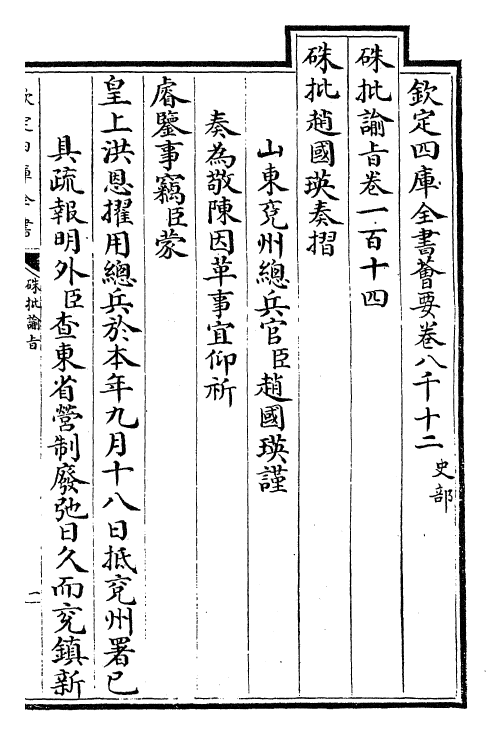 欽定四庫全書薈要卷八千十二 史部
硃批諭旨卷一百十四
硃批趙國瑛奏摺
山東兖州總兵官臣趙國瑛謹
奏為敬陳因革事宜仰祈
睿鑒事竊臣蒙
皇上洪恩擢用總兵於本年九月十八日抵兖州署已
具疏報明外臣查東省營制廢弛日久而兖鎮新
欽定四庫全書
硃批諭旨